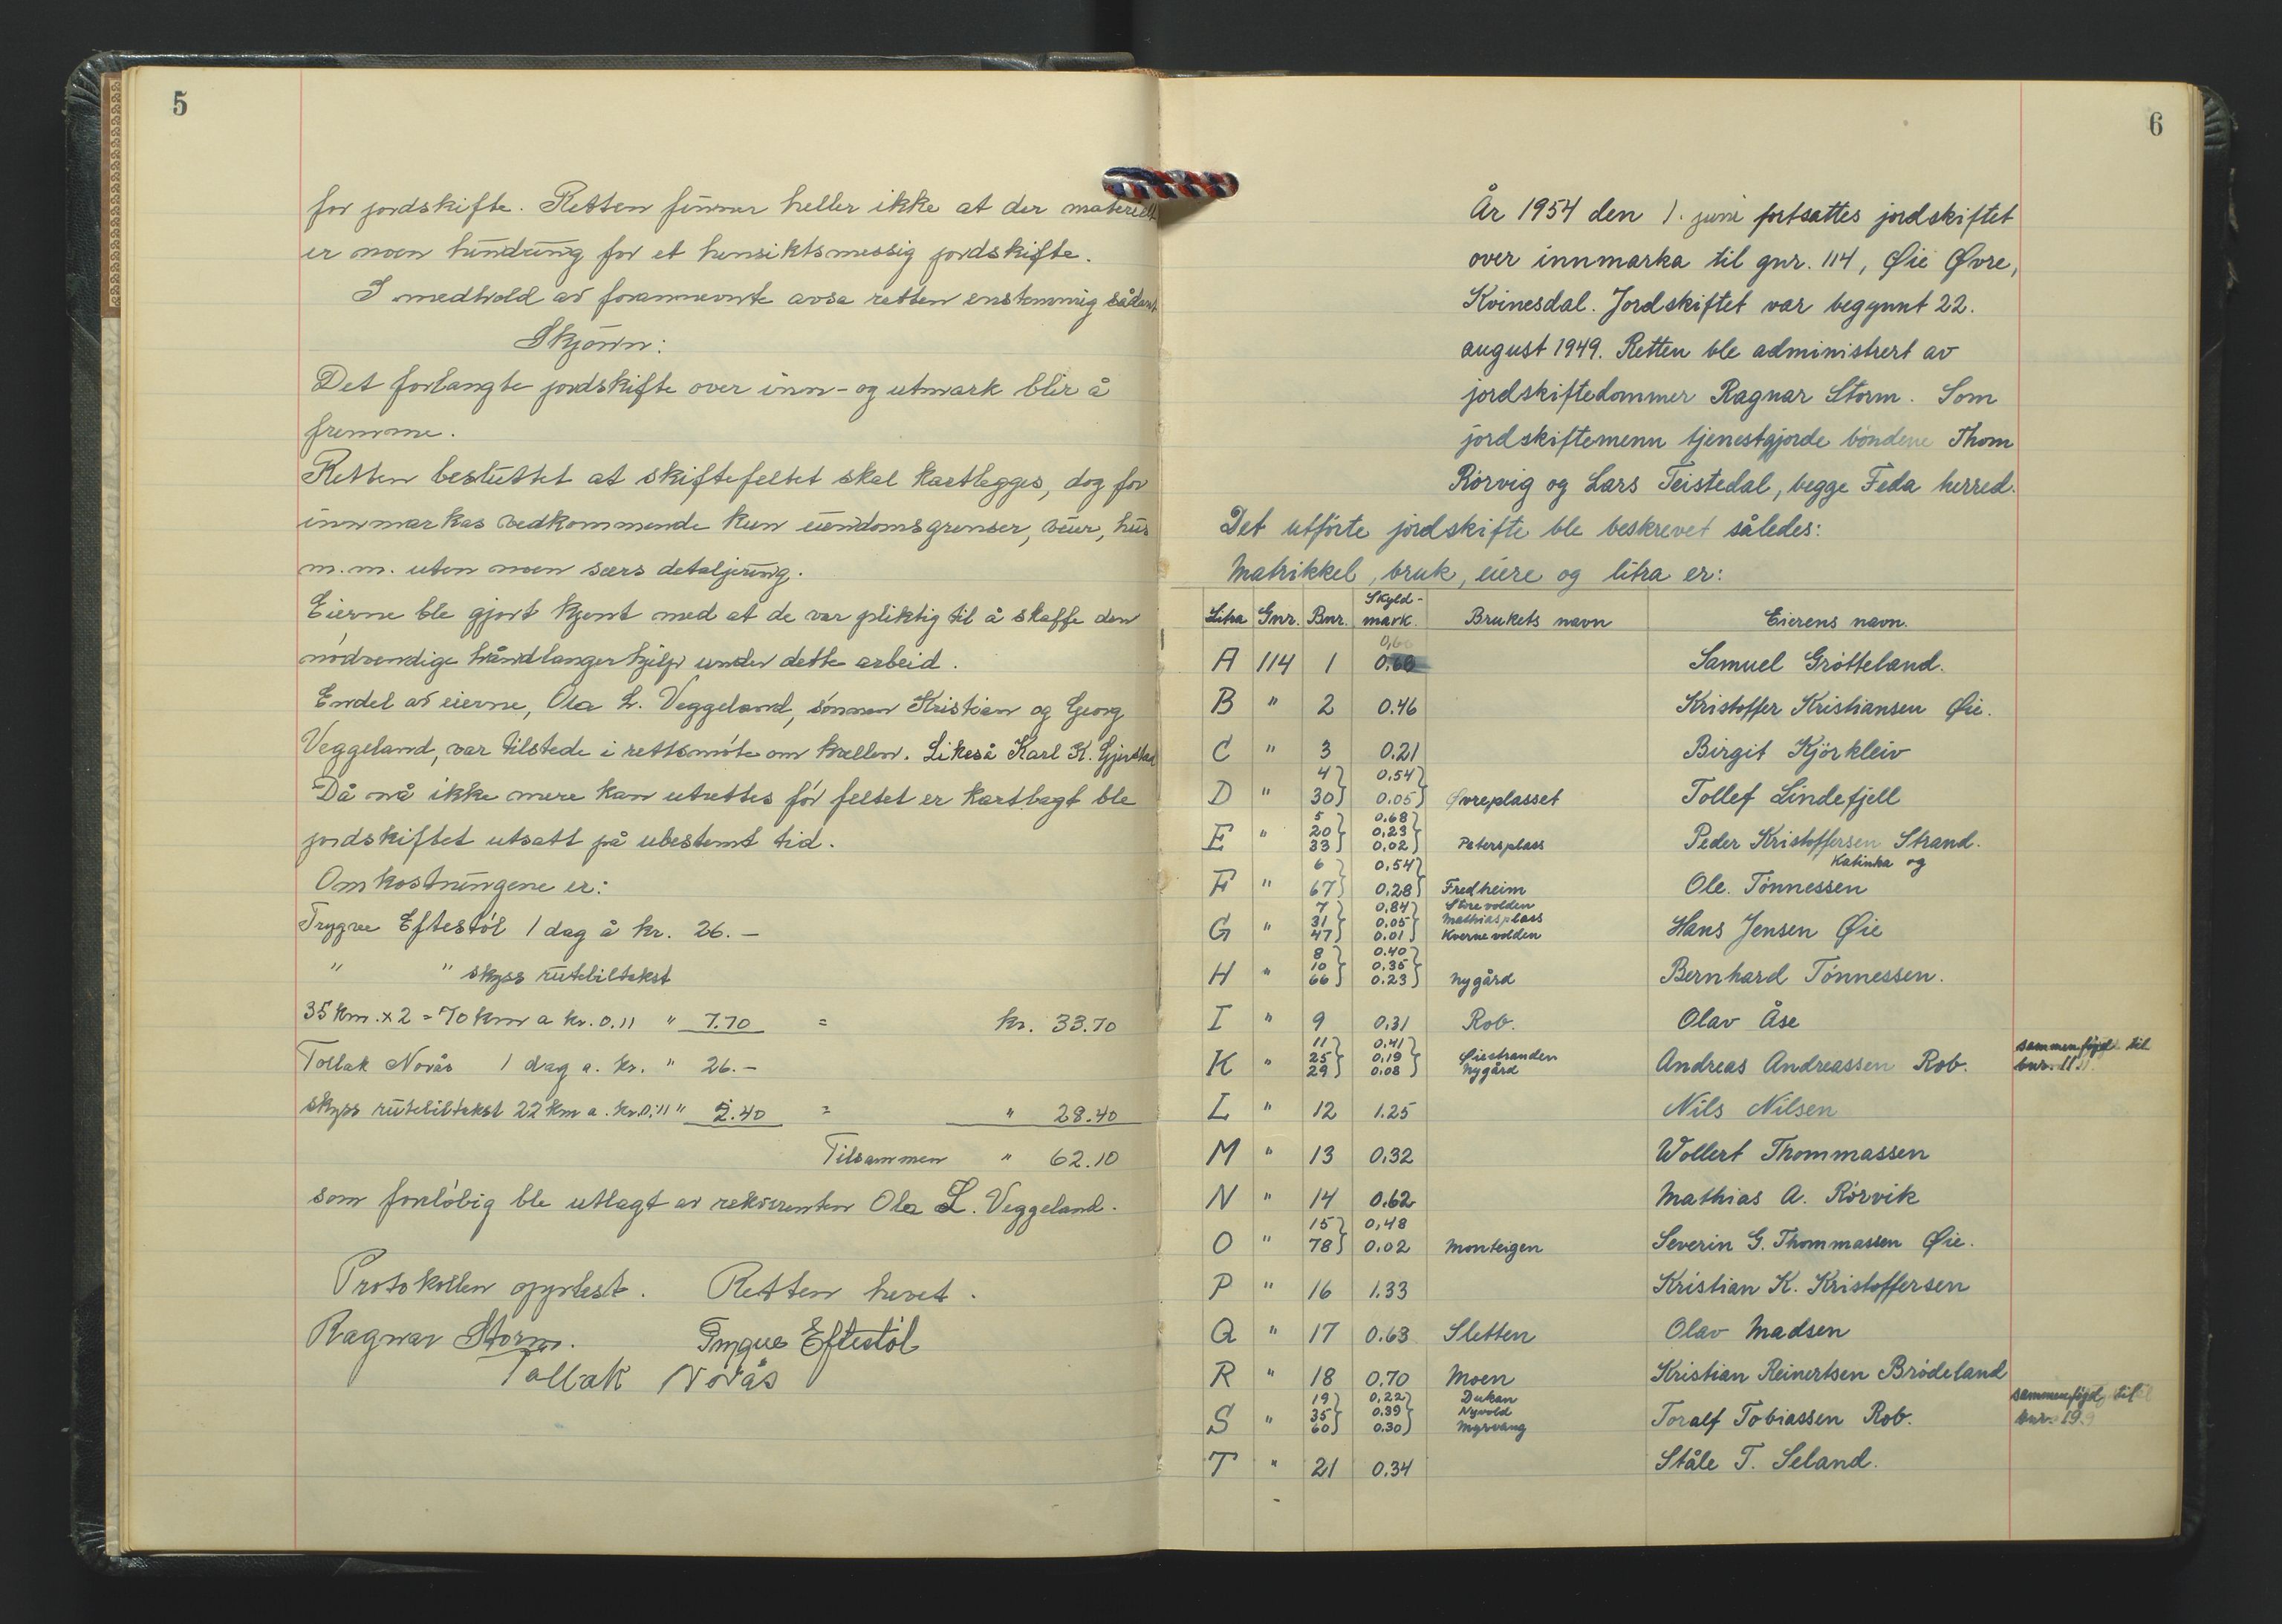 5
for jordskifte. Retten finner heller ikke at der materielt
er noen hindring for et hensiktsmessig jordskifte.
I medhold av forannevnte avsa retten enstemmig sådant
Skjønn:
Det forlangte jordskifte over inn- og utmark blir å
fremme.
Retten besluttet at skiftefeltet skal kartlegges, dog for
innmarkas vedkommende kun eiendomsgrenser, veier, hus
m.m. uten noen særs detaljering.
Eierne ble gjort kjent med at de var pliktig til å skaffe den
nödvendige håndlangerhjelp under dette arbeid.
Endel av eierne, Ola L. Veggeland, sönnen Kristian og Georg
Veggeland, var tilstede i rettsmöte om kvellen. Likeså Karl K. Gjerstad
Då nå ikke mere kan utrettes för feltet er kartlagt ble
jordskiftet utsatt på ubestemt tid.
Omkostningene er:
Trygve Eftestöl 1 dag à kr. 26.—
" " skyss rutebiltakst
35 km. x 2 = 70 km a kr. 0.11 " 7.70 = kr. 33.70
Tollak Novås 1 dag a. kr. " 26.—
skyss rutebiltakst 22 km a. kr. 0.11 " 2.40 = " 28.40
Tilsammen " 62.10
som forelöbig ble utlagt av rekvirenten Ola L. Veggeland.
Protokollen opplest. Retten hevet.
Ragnar Storm. Trygve Eftestöl
Tallak Novås
6
År 1954 den 1. juni fortsattes jordskiftet
over innmarka til gnr. 114, Øie Øvre,
Kvinesdal. Jordskiftet var begynnt 22.
august 1949. Retten ble administrert av
jordskiftedommer Ragnar Storm. Som
jordskiftemenn tjenestgjorde böndene Thom
Rörvig og Lars Teistedal, begge Feda herred.
Det utförte jordskifte ble beskrevet således:
Matrikkel, bruk, eiere og litra er:
Litra Gnr. Bnr. Skyld-mark. Brukets navn Eierens navn.
0,60
A 114 1 0.68 Samuel Grötteland.
B " 2 0.46 Kristoffer Kristiansen Øie.
C " 3 0.21 Birgit Kjörkleiv
4 0.54
D " 30 0.05 Øvreplasset Tollef Lindefjell
5 0.68
E " 20 0.23
33 0.02 Petersplass Peder Kristoffersen Strand.
6 0.54 Katinka og
F " 67 0.28 Fredheim Ole. Tönnessen
7 0.84 Store volden
G " 31 0.05 Mathiasplass Hans Jensen Øie
47 0.01 Kvernevolden
8 0.40
10 0.35
H " 66 0.23 Nygård Bernhard Tönnessen.
I " 9 0.31 Rob. Olav Åse
11 0.41
K " 25 0.19 Øiestranden Andreas Andreassen Rob. sammenföyd til
29 0.08 Nygård bnr. 11
L " 12 1.25 Nils Nilsen
M " 13 0.32 Wollert Thommassen
N " 14 0.62 Mathias A. Rörvik
15 0.48
O " 78 0.02 Monteigen Severin G. Thommassen Øie.
P " 16 1.33 Kristian K. Kristoffersen
Q " 17 0.63 Sletten Olav Madsen
R " 18 0.70 Moen Kristian Reinertsen Brödeland
19 0.22 Dukan sammenföyd til
S " 35 0.39 Nyvold Toralf Tobiassen Rob. bnr. 19
60 0.30 Myrvang
T " 21 0.34 Ståle T. Seland.